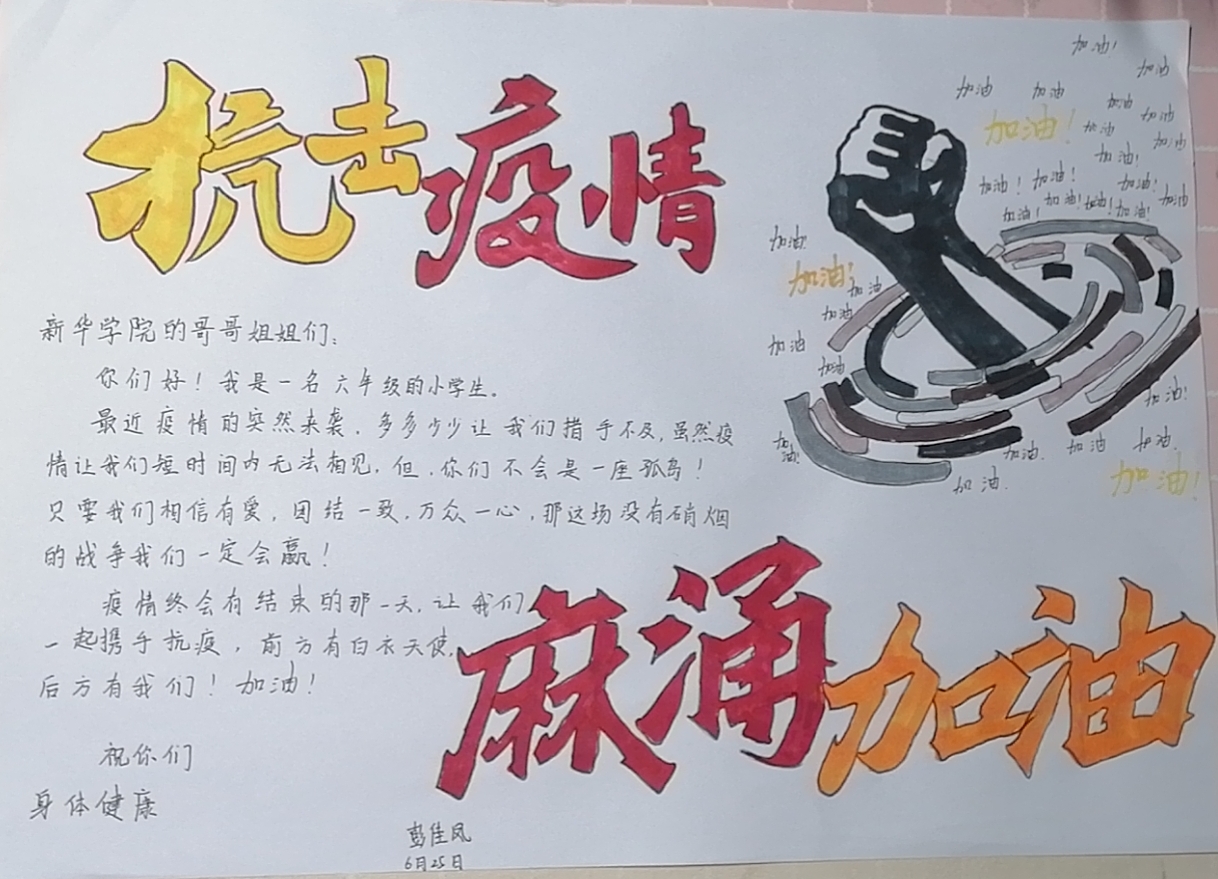 抗击疫情
新华学院的哥哥姐姐们:
你们好!我是一名六年级的小学生。
最近疫情的突然来袭,多多少少让我们措手不及,虽然疫
情让我们短时间内无法相见,但,你们不会是一座孤岛!
只要我们相信有爱,团结一致,万众一心,那这场没有硝烟
的战争我们一定会赢!
疫情终会有结束的那一天,让我们
一起携手抗疫,前方有白衣天使,
后方有我们!加油!
祝你们
身体健康
彭佳凤
6月25日
麻涌加油
加油!
加油
加油
加油
加油
加油
加油!
加油
加油
加油!
加油!
加油!
加油!
加油!
加油!
加油!
加油!
加油
加油!
加油!
加油!
加油
加油
加油
加油
加油!
加油!
加油.
加油
加油.
加油.
加油!